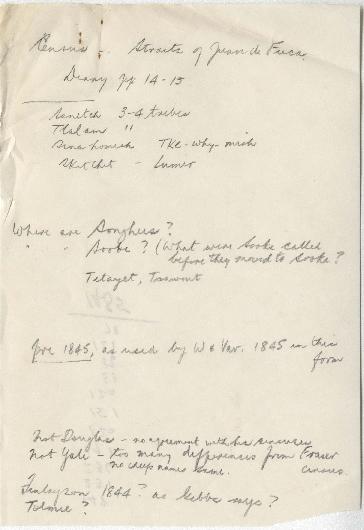 Census - Straits of Juan de Fuca.
Diary pp 14-15
Sanetch 3-4 tribes
Tlalam "
Sinahomish Tke-why-mish
Skitchet - Lumer
Where are Songhees?
" " Sooke? (What were Sooke called
before they moved to Sooke?
Tetayet, Tsawout
pre 1845, as used by W & Vav. 1845 in this
form
Not Douglas - no agreement with his censuses
Not Yale - too many differences from Fraser
no chiefs names same. census.
Finlayson 1844? as Gibbs says?
Tolmie?